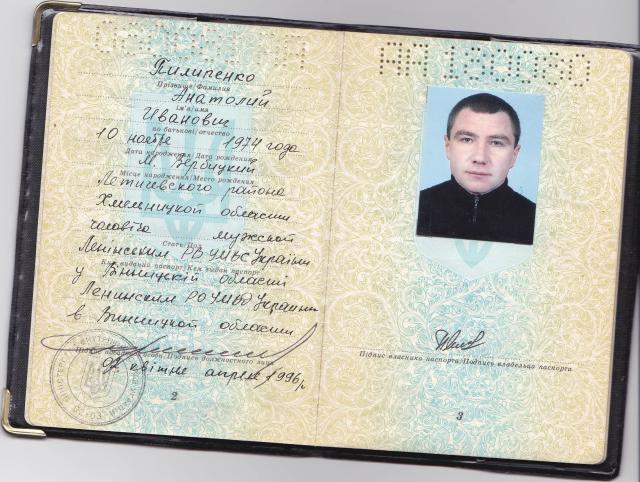 Пилипенко
Прізвище/Фамилия
Анатолий
ім'я/имя
Иванович
по батькові/отчество
10 ноября 1974 года
Дата народження/Дата рождения
Місце народження/Место рождения
Летичевского района
Хмельницкой области
чоловіча мужской
Стать/Пол
Ленінським РВ УМВС України
Ким виданий паспорт/Кем выдан паспорт
у Вінницькій області
Ленинским РО УМВД Украины
в Винницкой области
Підпис посадової особи/Подпись должностного лица
квітня апреля 1996р
2
Підпис власника паспорта/Подпись владельца паспорта
3